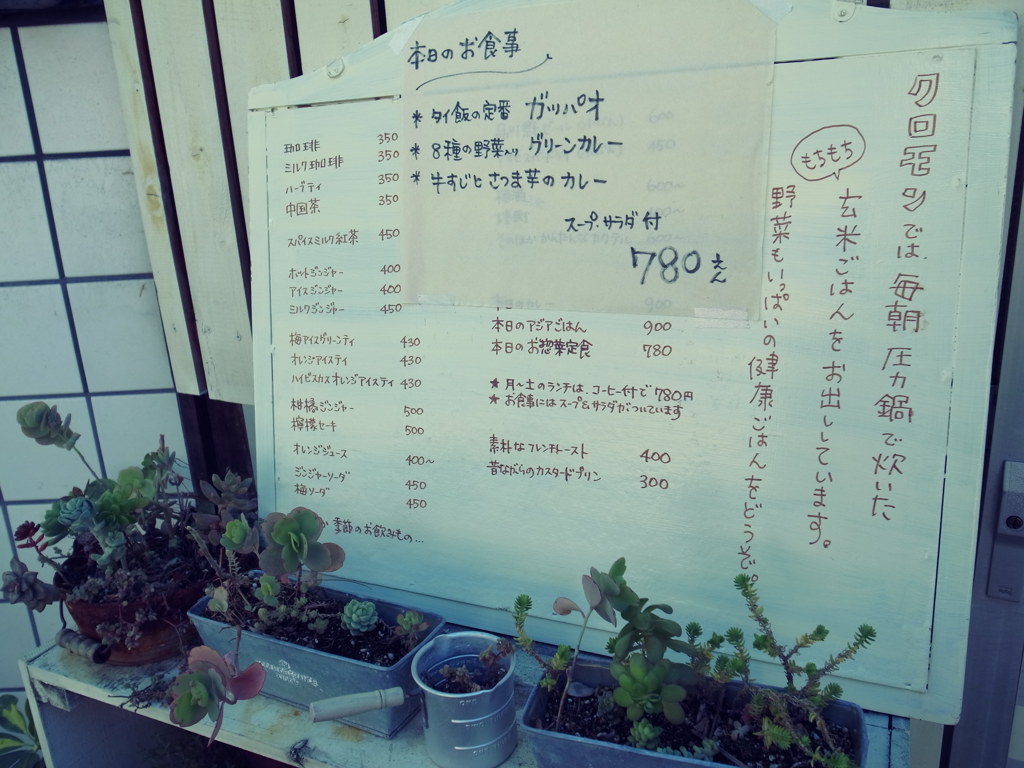 クロモンでは、毎朝 圧力鍋で炊いた
もちもち
玄米ごはんをお出ししています。
野菜もいっぱいの健康ごはんをどうぞ。
本日のお食事
* タイ飯の定番 ガッパオ
* 8種の野菜入り グリーンカレー
* 牛すじとさつま芋のカレー
スープ・サラダ付
780えん
珈琲 350
ミルク珈琲 350
ハーブティ 350
中国茶 350
スパイスミルク紅茶 450
ホットジンジャー 400
アイスジンジャー 400
ミルクジンジャー 450
梅アイスグリーンティ 430
オレンジアイスティ 430
ハイビスカスオレンジアイスティ 430
柑橘ジンジャー 500
檸檬セーキ 500
オレンジジュース 400~
ジンジャーソーダ 450
梅ソーダ 450
季節のお飲みもの…
900
本日のアジアごはん 900
本日のお惣菜定食 780
★ 月〜土のランチは、コーヒー付で780円
★ お食事にはスープ&サラダがついています
素朴なフレンチトースト 400
昔ながらのカスタードプリン 300